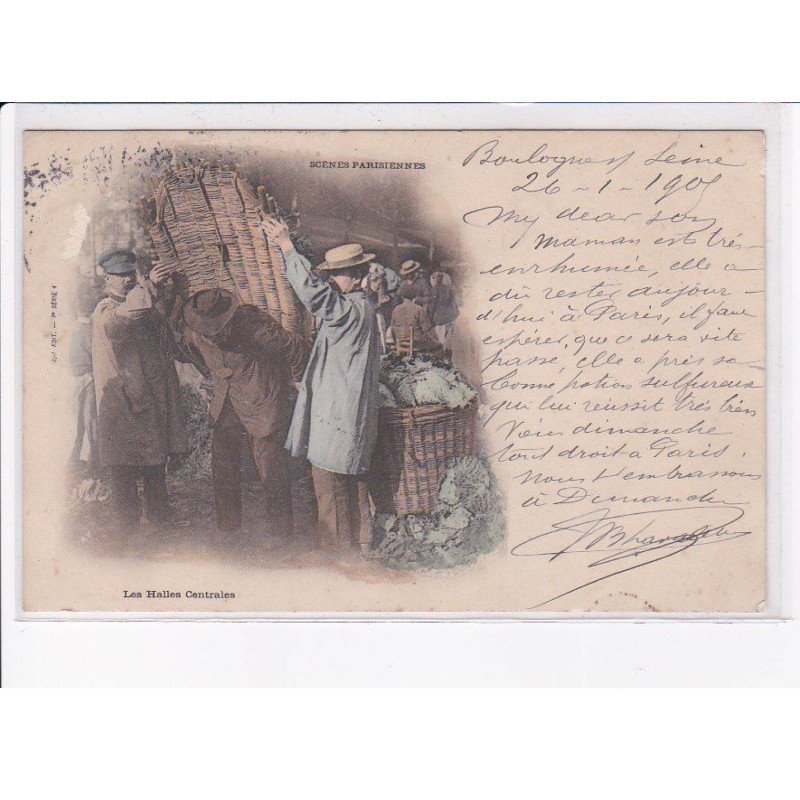 SCÈNES PARISIENNES
Boulogne s/ Seine
26-1-1905
My dear son
Maman est très
enrhumée, elle a
dû rester aujour-
d'hui à Paris, il faut
espérer que ce sera vite
passé, elle a pris sa
bonne potion sulfureuse
qui lui réussit très bien
Viens dimanche
tout droit à Paris.
Nous t'embrassons
à Dimanche
EDIT. — 2e SÉRIE 4
Les Halles Centrales